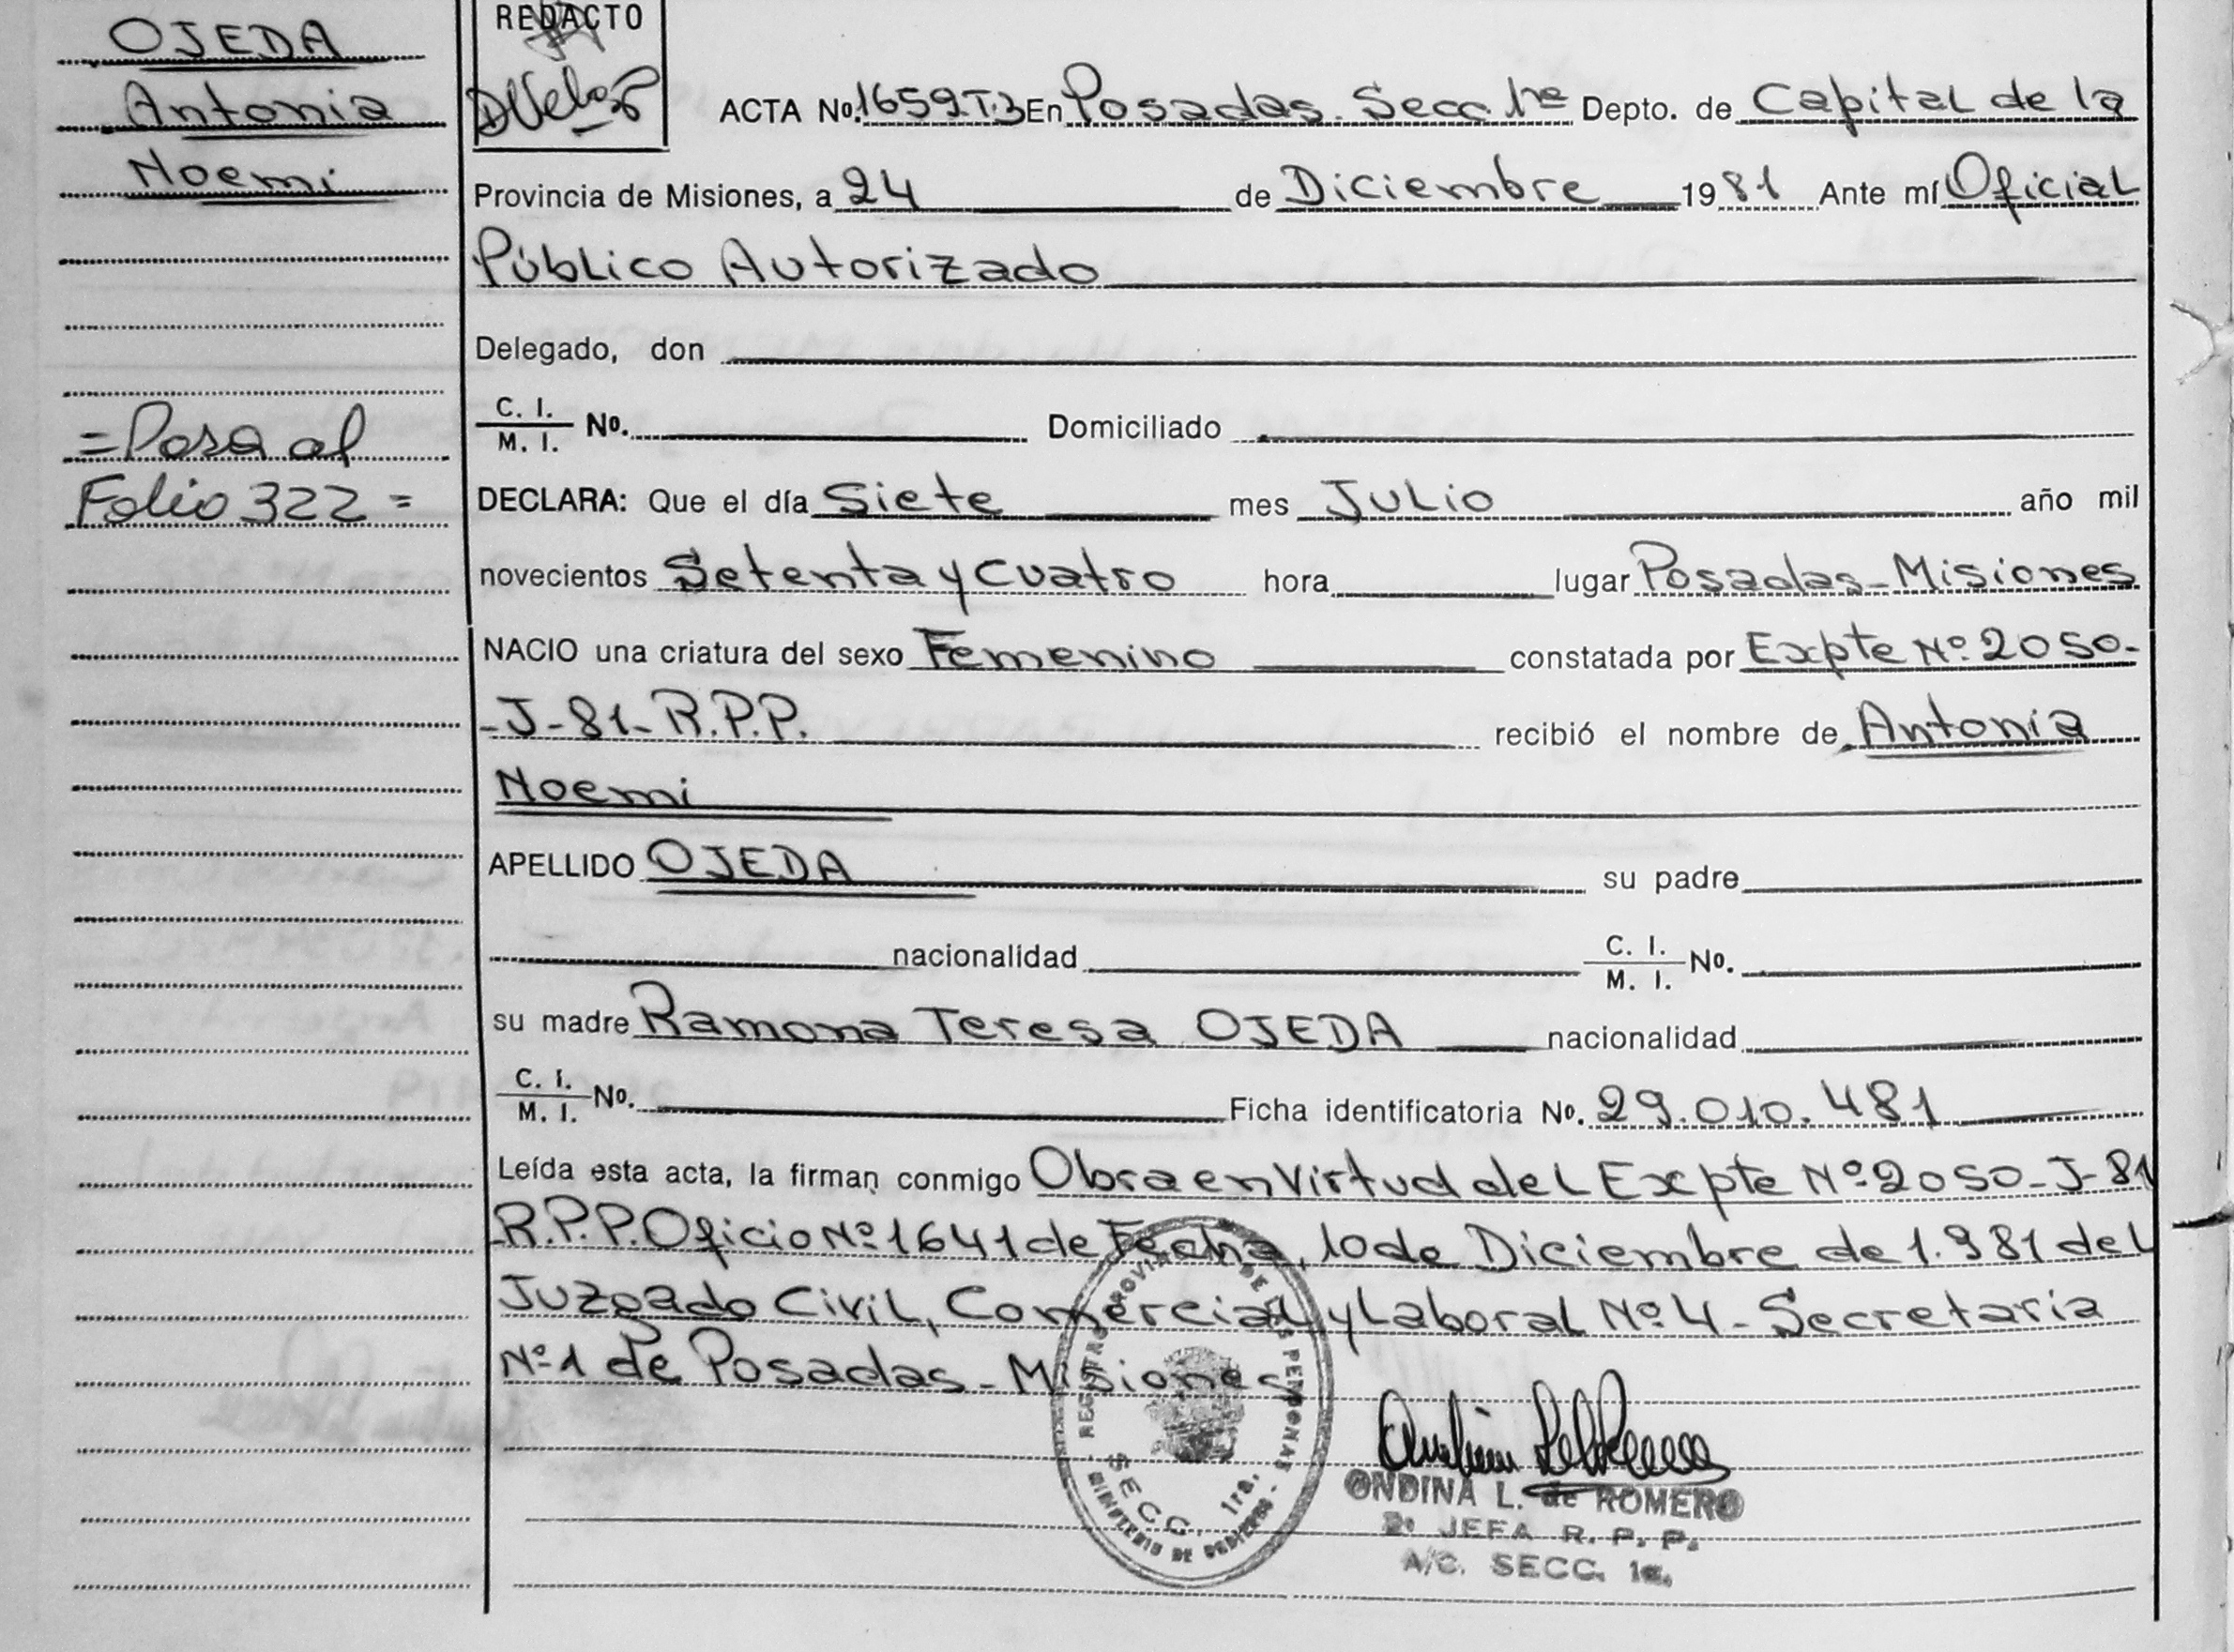 OJEDA
Antonia
Noemi
=Pasa al
Folio 322=
REDACTO
ACTA Nº.1659T.3 En Posadas. Secc. 1ra Depto. de Capital de la
Provincia de Misiones, a 24 de Diciembre 1981 Ante mí Oficial
Público Autorizado
Delegado, don
C. I.
M. I. Nº. Domiciliado
DECLARA: Que el día Siete mes Julio año mil
novecientos Setenta y Cuatro hora lugar Posadas-Misiones
NACIO una criatura del sexo Femenino constatada por Expte Nº.2050-
-J-81-R.P.P. recibió el nombre de Antonia
Noemi
APELLIDO OJEDA su padre
nacionalidad C. I.
M. I. Nº.
su madre Ramona Teresa OJEDA nacionalidad
C. I.
M. I. Nº. Ficha identificatoria Nº. 29.010.481
Leída esta acta, la firman conmigo Obra en Virtud del Expte Nº2050-J-81
R.P.P. Oficio Nº1641 de Fecha, 10 de Diciembre de 1.981 del
Juzgado Civil, Comercial y Laboral Nº4-Secretaria
Nº1 de Posadas-Misiones
REGISTRO PROVINCIAL DE LAS PERSONAS
SECC. 1ra.
MINISTERIO DE GOBIERNO
ONDINA L. de ROMERO
2º JEFA R. P. P.
A/C. SECC. 1a.